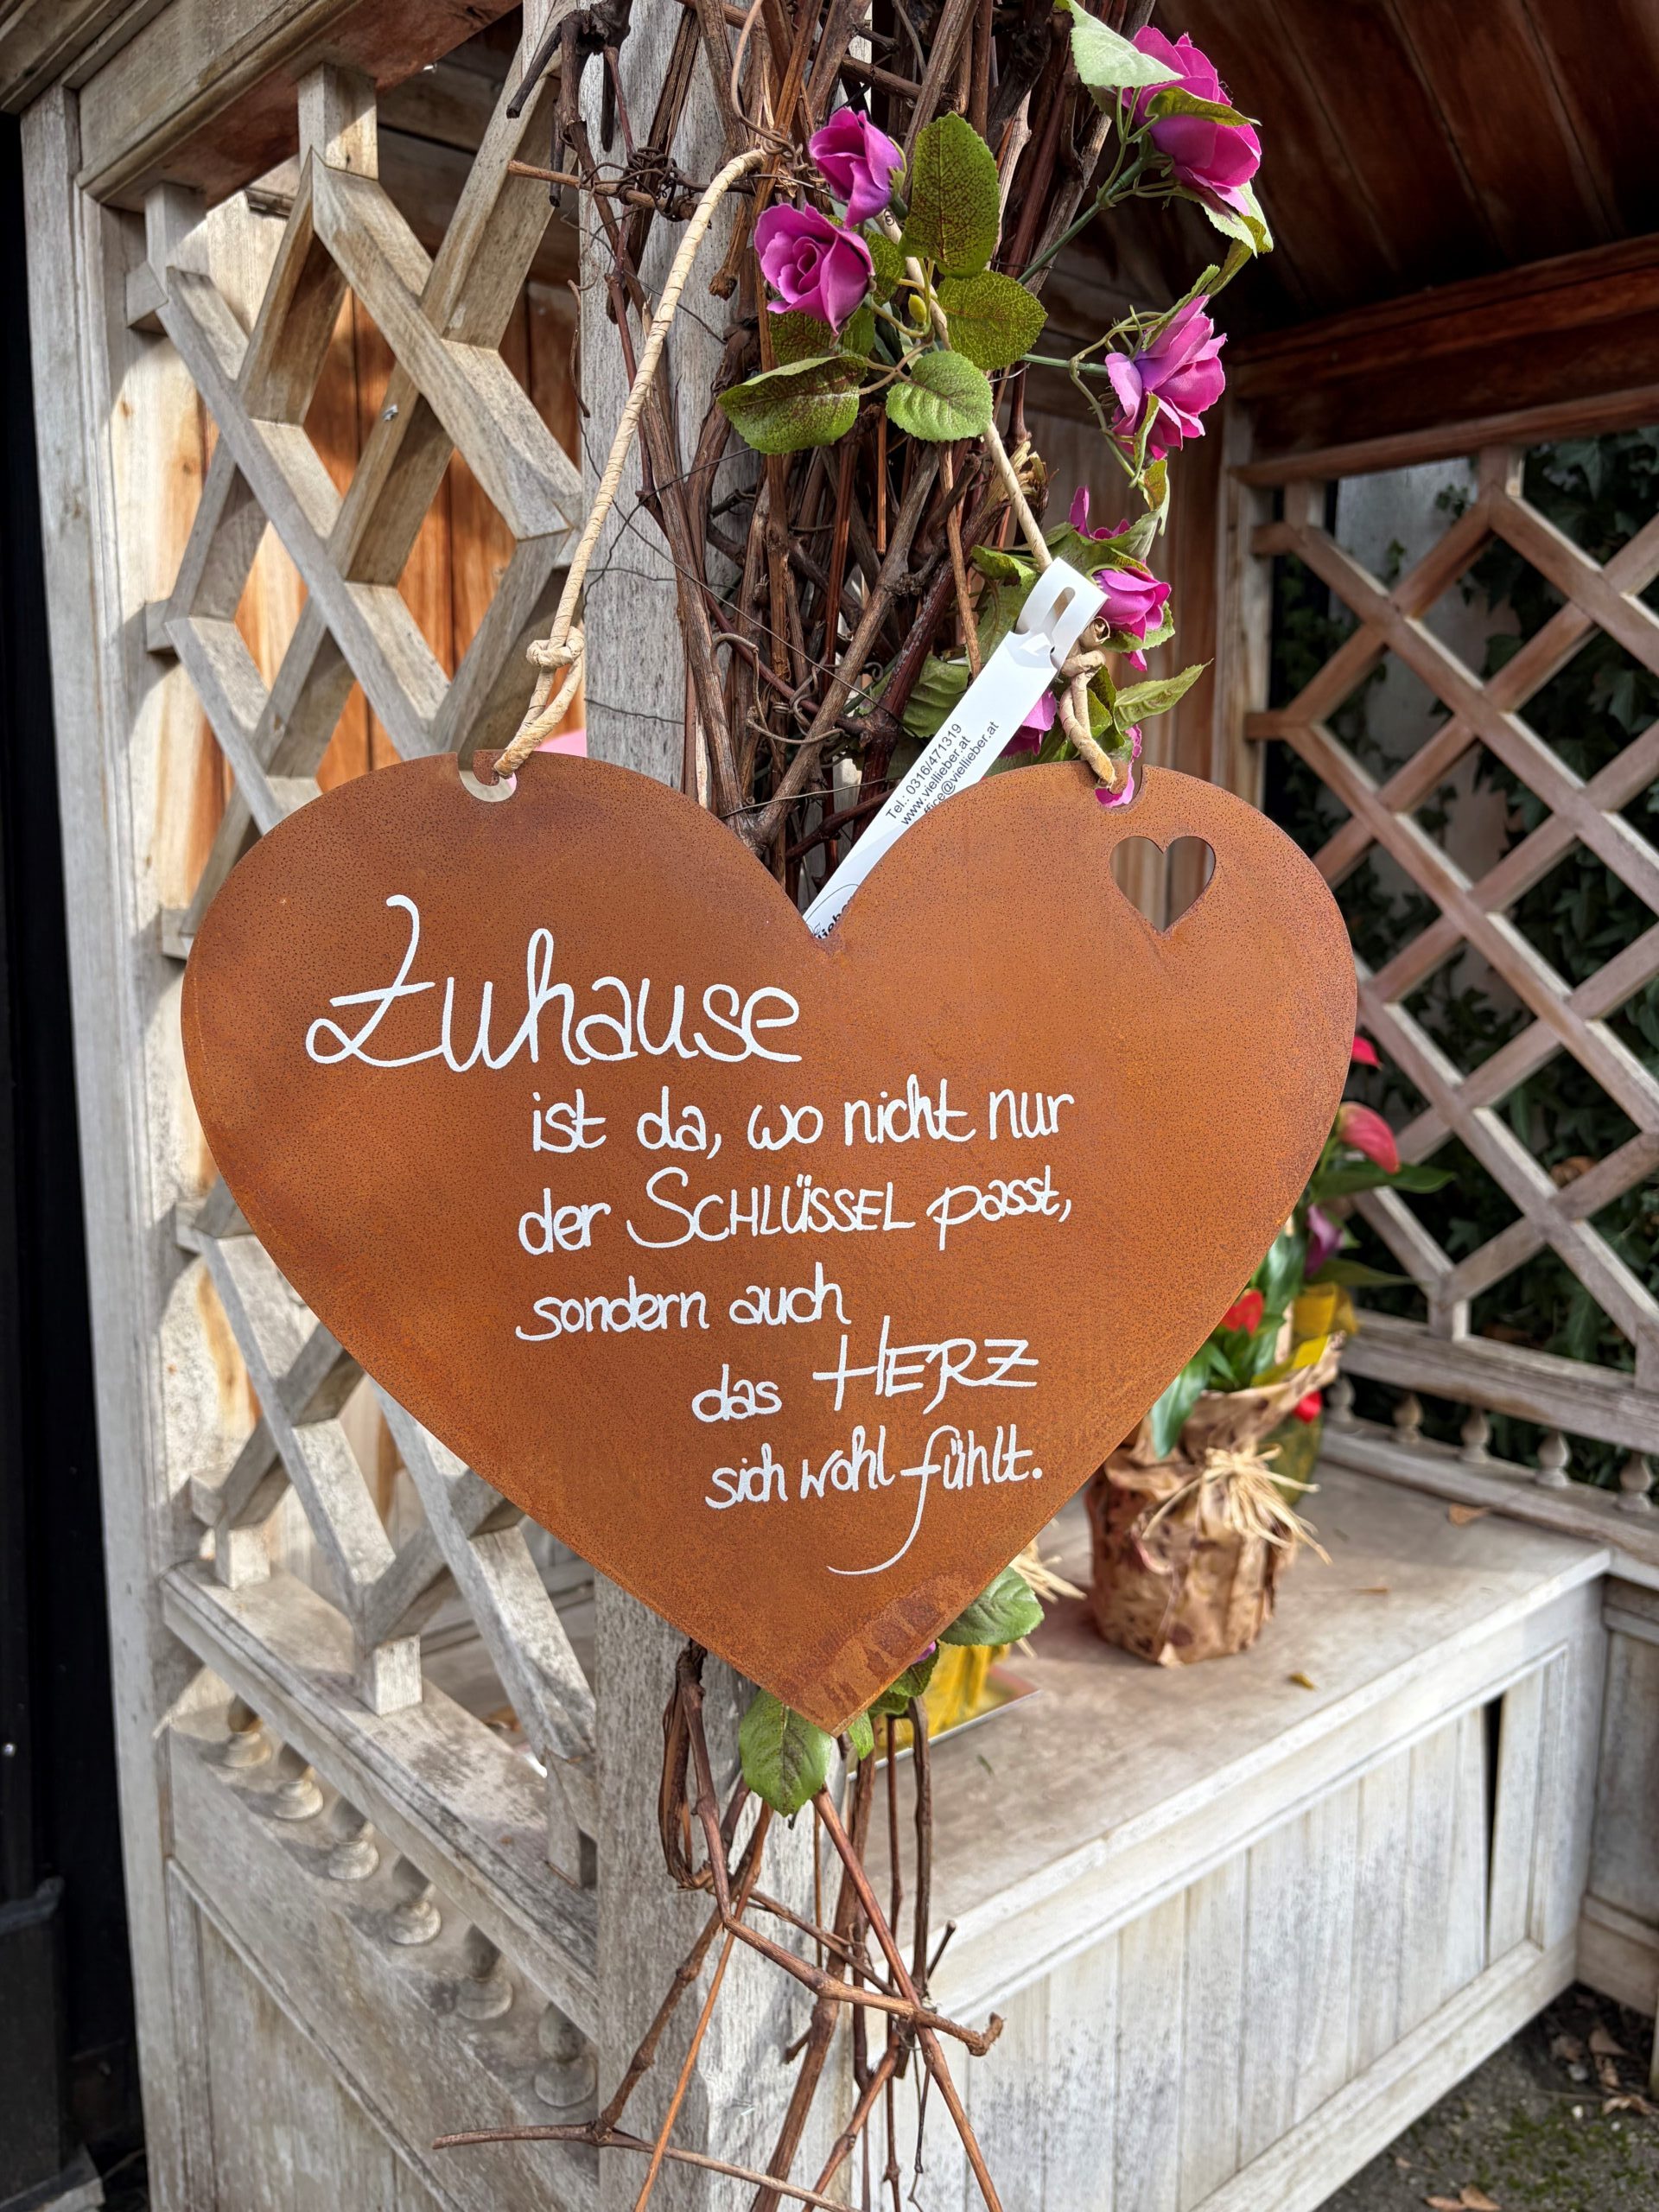 Tel.: 0316/471319
www.viellieber.at
office@viellieber.at
Zuhause
ist da, wo nicht nur
der SCHLÜSSEL passt,
sondern auch
das HERZ
sich wohl fühlt.